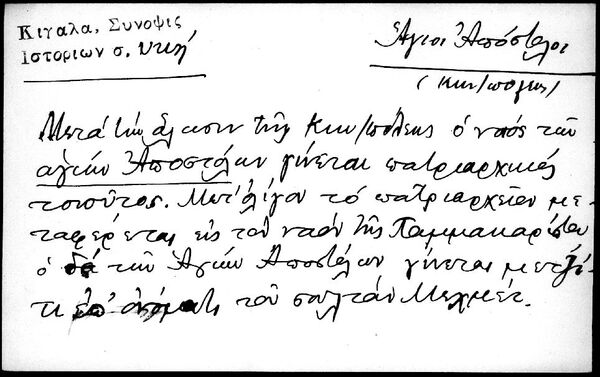 Κιγαλα, Συνοψις
Ιστοριων σ. υκή
Ἅγιοι Ἀπόστολοι
(Κων/πολις)
Μετὰ τὴν ἅλωσιν τῆς Κων/πόλεως ὁ ναὸς τῶν
ἁγίων Ἀποστόλων γίνεται πατριαρχικὸς
τοιοῦτος. Μετ' ὀλίγον τὸ πατριαρχεῖον με-
ταφέρεται εἰς τὸν ναὸν τῆς Παμμακαρίστου
ὁ δὲ τῶν Ἁγίων Ἀποστόλων γίνεται μετζί-
τι ἐπ' ὀνόματι τοῦ σουλτὰν Μεχμέτ.